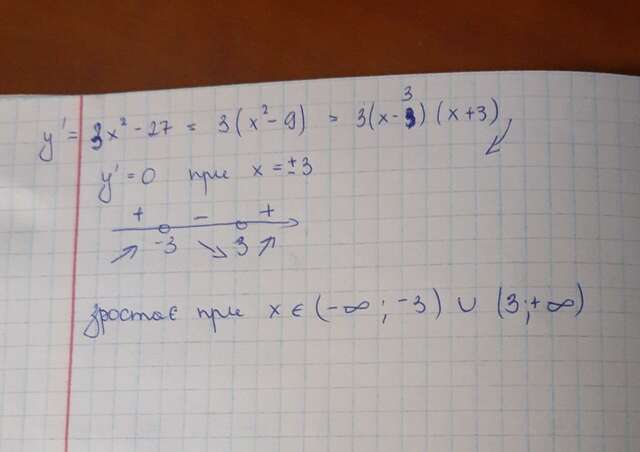 y' = 3x² - 27 = 3(x² - 9) = 3(x - 3)(x + 3)
y' = 0 при x = ±3
+ - +
-3 3
зростає при x ∈ (-∞; -3) ∪ (3; +∞)